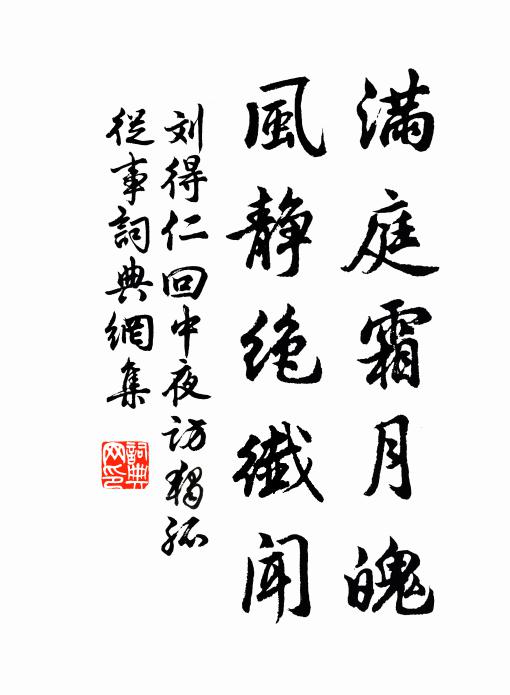 満庭霜月魄
風静絶纖聞
刘得仁回中夜访獨孤
從事詞典網集
詞典
网印